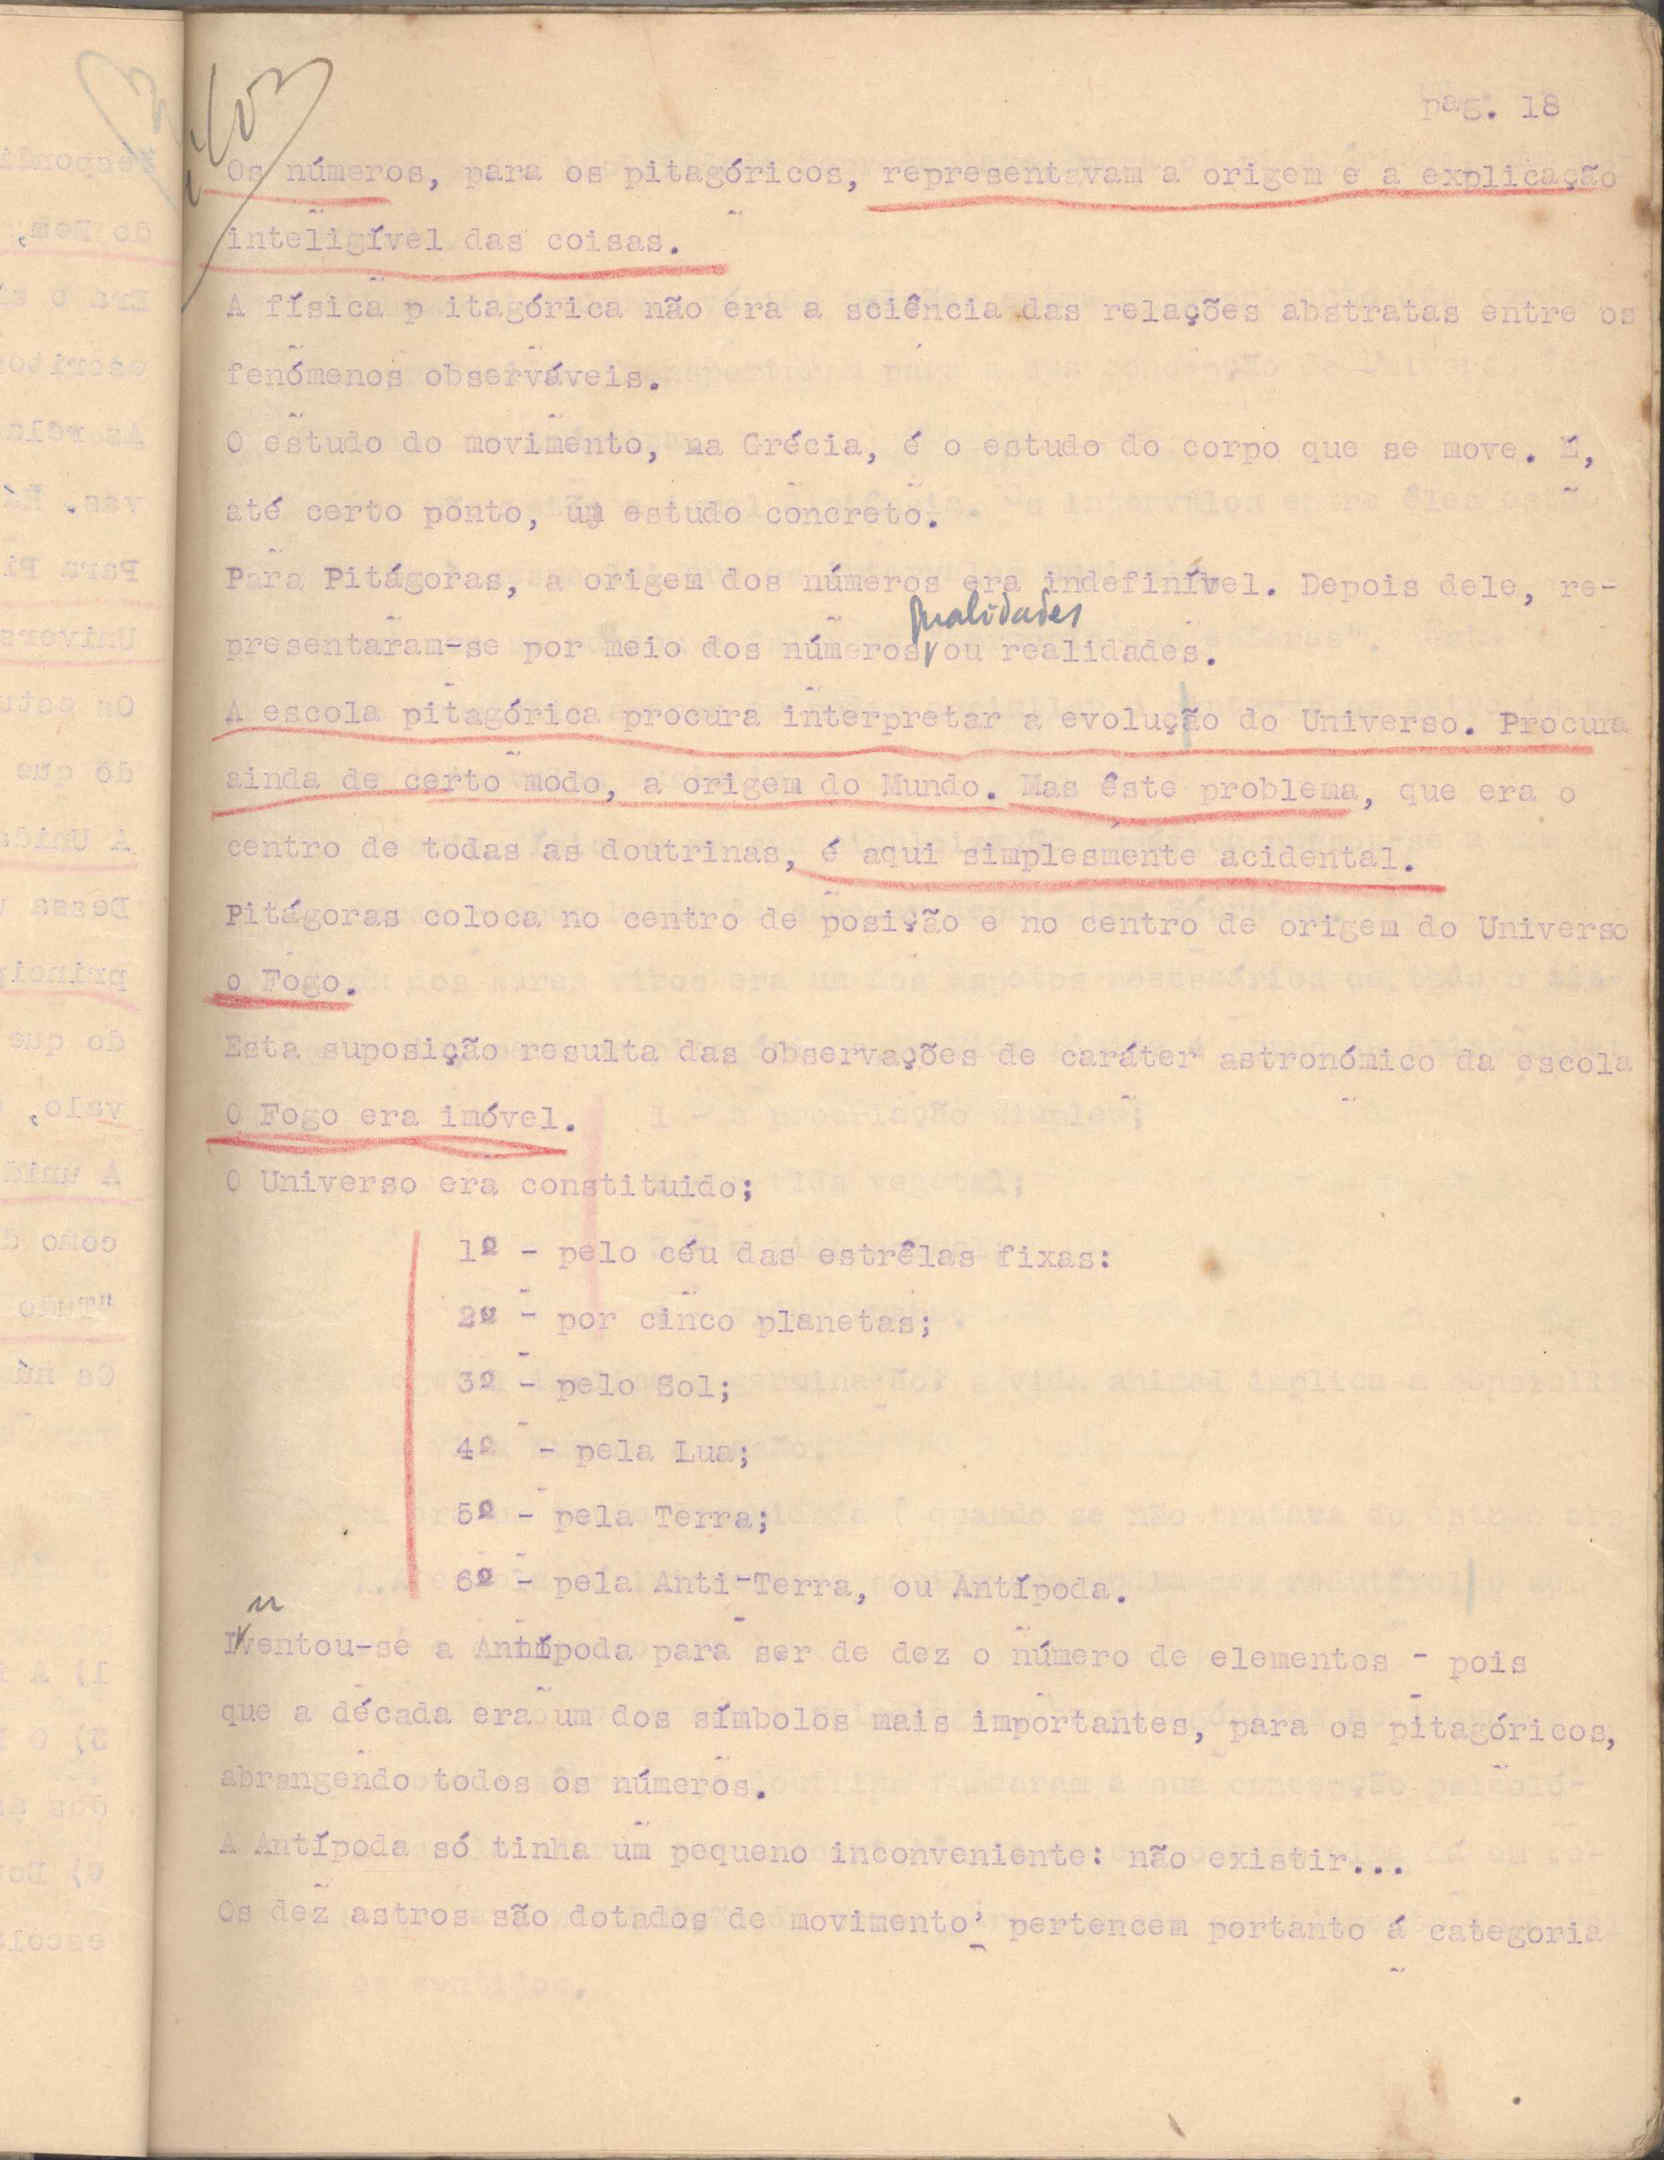 pag. 18
Os números, para os pitagóricos, representavam a origem e a explicação
inteligível das coisas.
A física p itagórica não éra a sciência das relações abstratas entre os
fenómenos observáveis.
O estudo do movimento, na Grécia, é o estudo do corpo que se move. É,
até certo ponto, um estudo concreto.
Para Pitágoras, a origem dos números era indefinível. Depois dele, re-
qualidades
presentaram-se por meio dos números ou realidades.
A escola pitagórica procura interpretar a evolução do Universo. Procura
ainda de certo modo, a origem do Mundo. Mas êste problema, que era o
centro de todas as doutrinas, é aqui simplesmente acidental.
Pitágoras coloca no centro de posição e no centro de origem do Universo
o Fogo.
Esta suposição resulta das observações de caráter astronómico da escola
O Fogo era imóvel.
O Universo era constituido;
1º - pelo céu das estrêlas fixas:
2º - por cinco planetas;
3º - pelo Sol;
4º - pela Lua;
5º - pela Terra;
6º - pela Anti-Terra, ou Antípoda.
n
Iventou-se a Antípoda para ser de dez o número de elementos - pois
que a década era um dos símbolos mais importantes, para os pitagóricos,
abrangendo todos os números.
A Antípoda só tinha um pequeno inconveniente: não existir...
Os dez astros são dotados de movimento; pertencem portanto á categoria